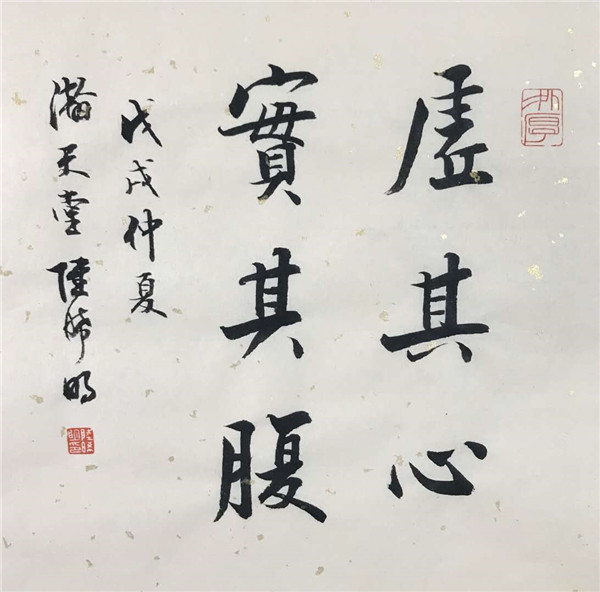 虛其心
實其腹
戊戌仲夏
瀚天堂 陸
明